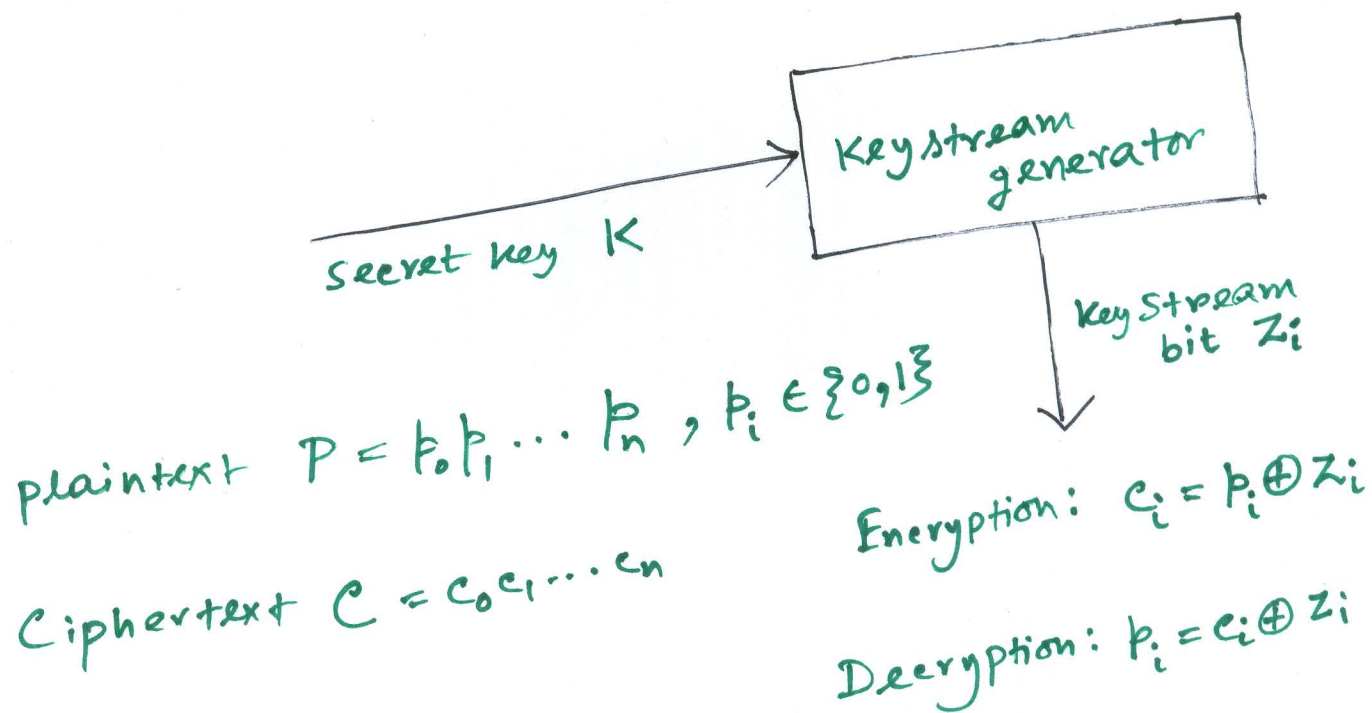 Keystream
generator
secret key K
Keystream
bit Zi
plaintext P = p₀p₁... pₙ , pᵢ ∈ {0,1}
Ciphertext C = c₀c₁... cₙ
Encryption: cᵢ = pᵢ⊕Zᵢ
Decryption: pᵢ = cᵢ⊕Zᵢ